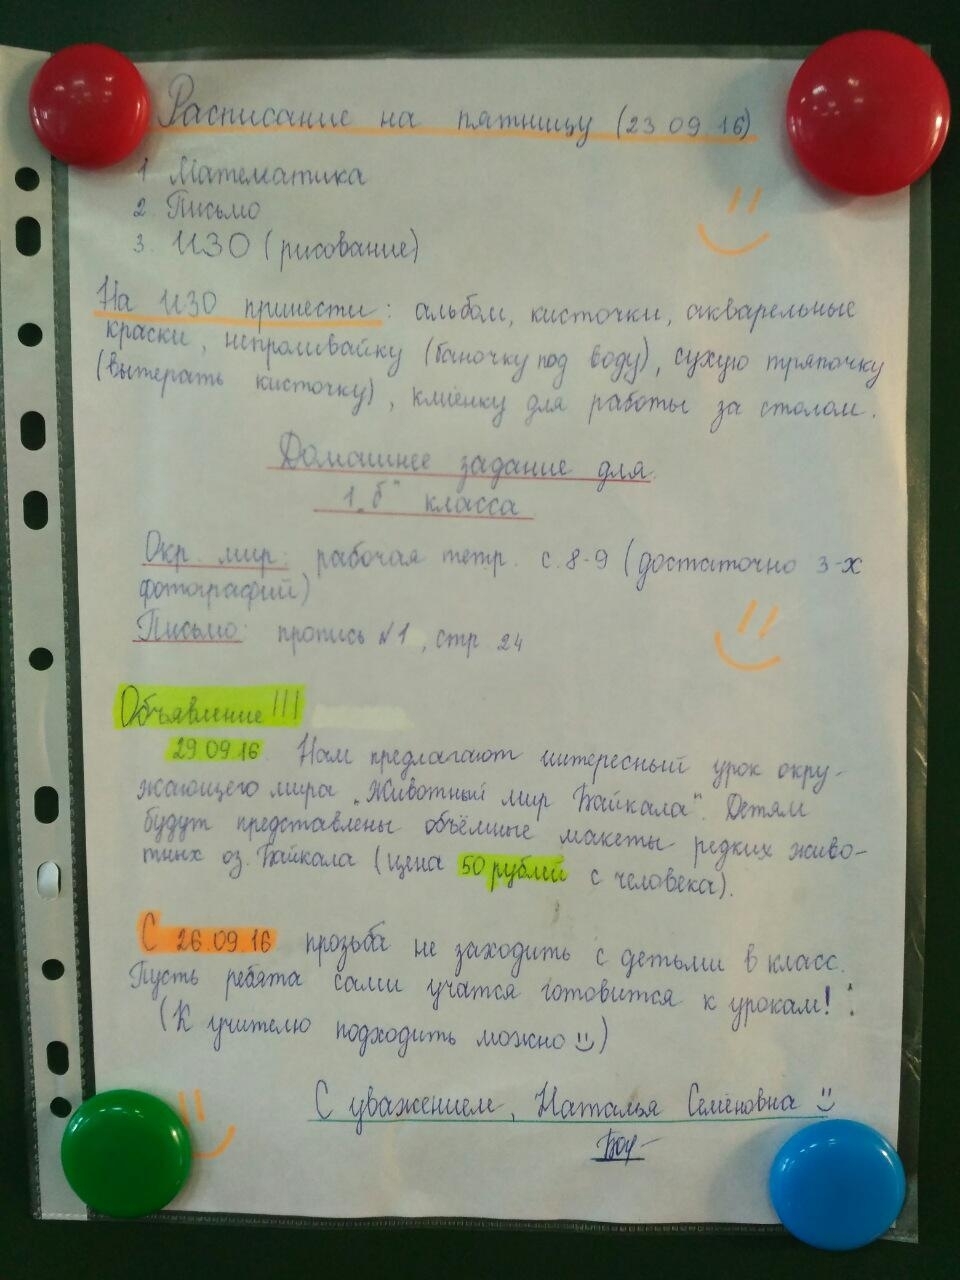 Расписание на пятницу (23 09 16)
1 Математика
2. Письмо
3. ИЗО (рисование)
На ИЗО принести: альбом, кисточки, акварельные
краски, непроливайку (баночку под воду), сухую тряпочку
(вытерать кисточку), клиёнку для работы за столом.
Домашнее задание для
1 „б" класса
Окр. мир: рабочая тетр. с. 8-9 (достаточно 3-х
фотографий)
Письмо: пропись №1, стр 24
Объявление!!!
29.09.16. Нам предлагают интересный урок окру-
жающего мира „Животный мир Байкала". Детям
будут представлены объёмные макеты редких живо-
тных оз. Байкала (цена 50 рублей с человека).
С 26.09.16 прозьба не заходить с детьми в класс.
Пусть ребята сами учатся готовится к урокам!
(К учителю подходить можно)
С уважением, Наталья Семёновна